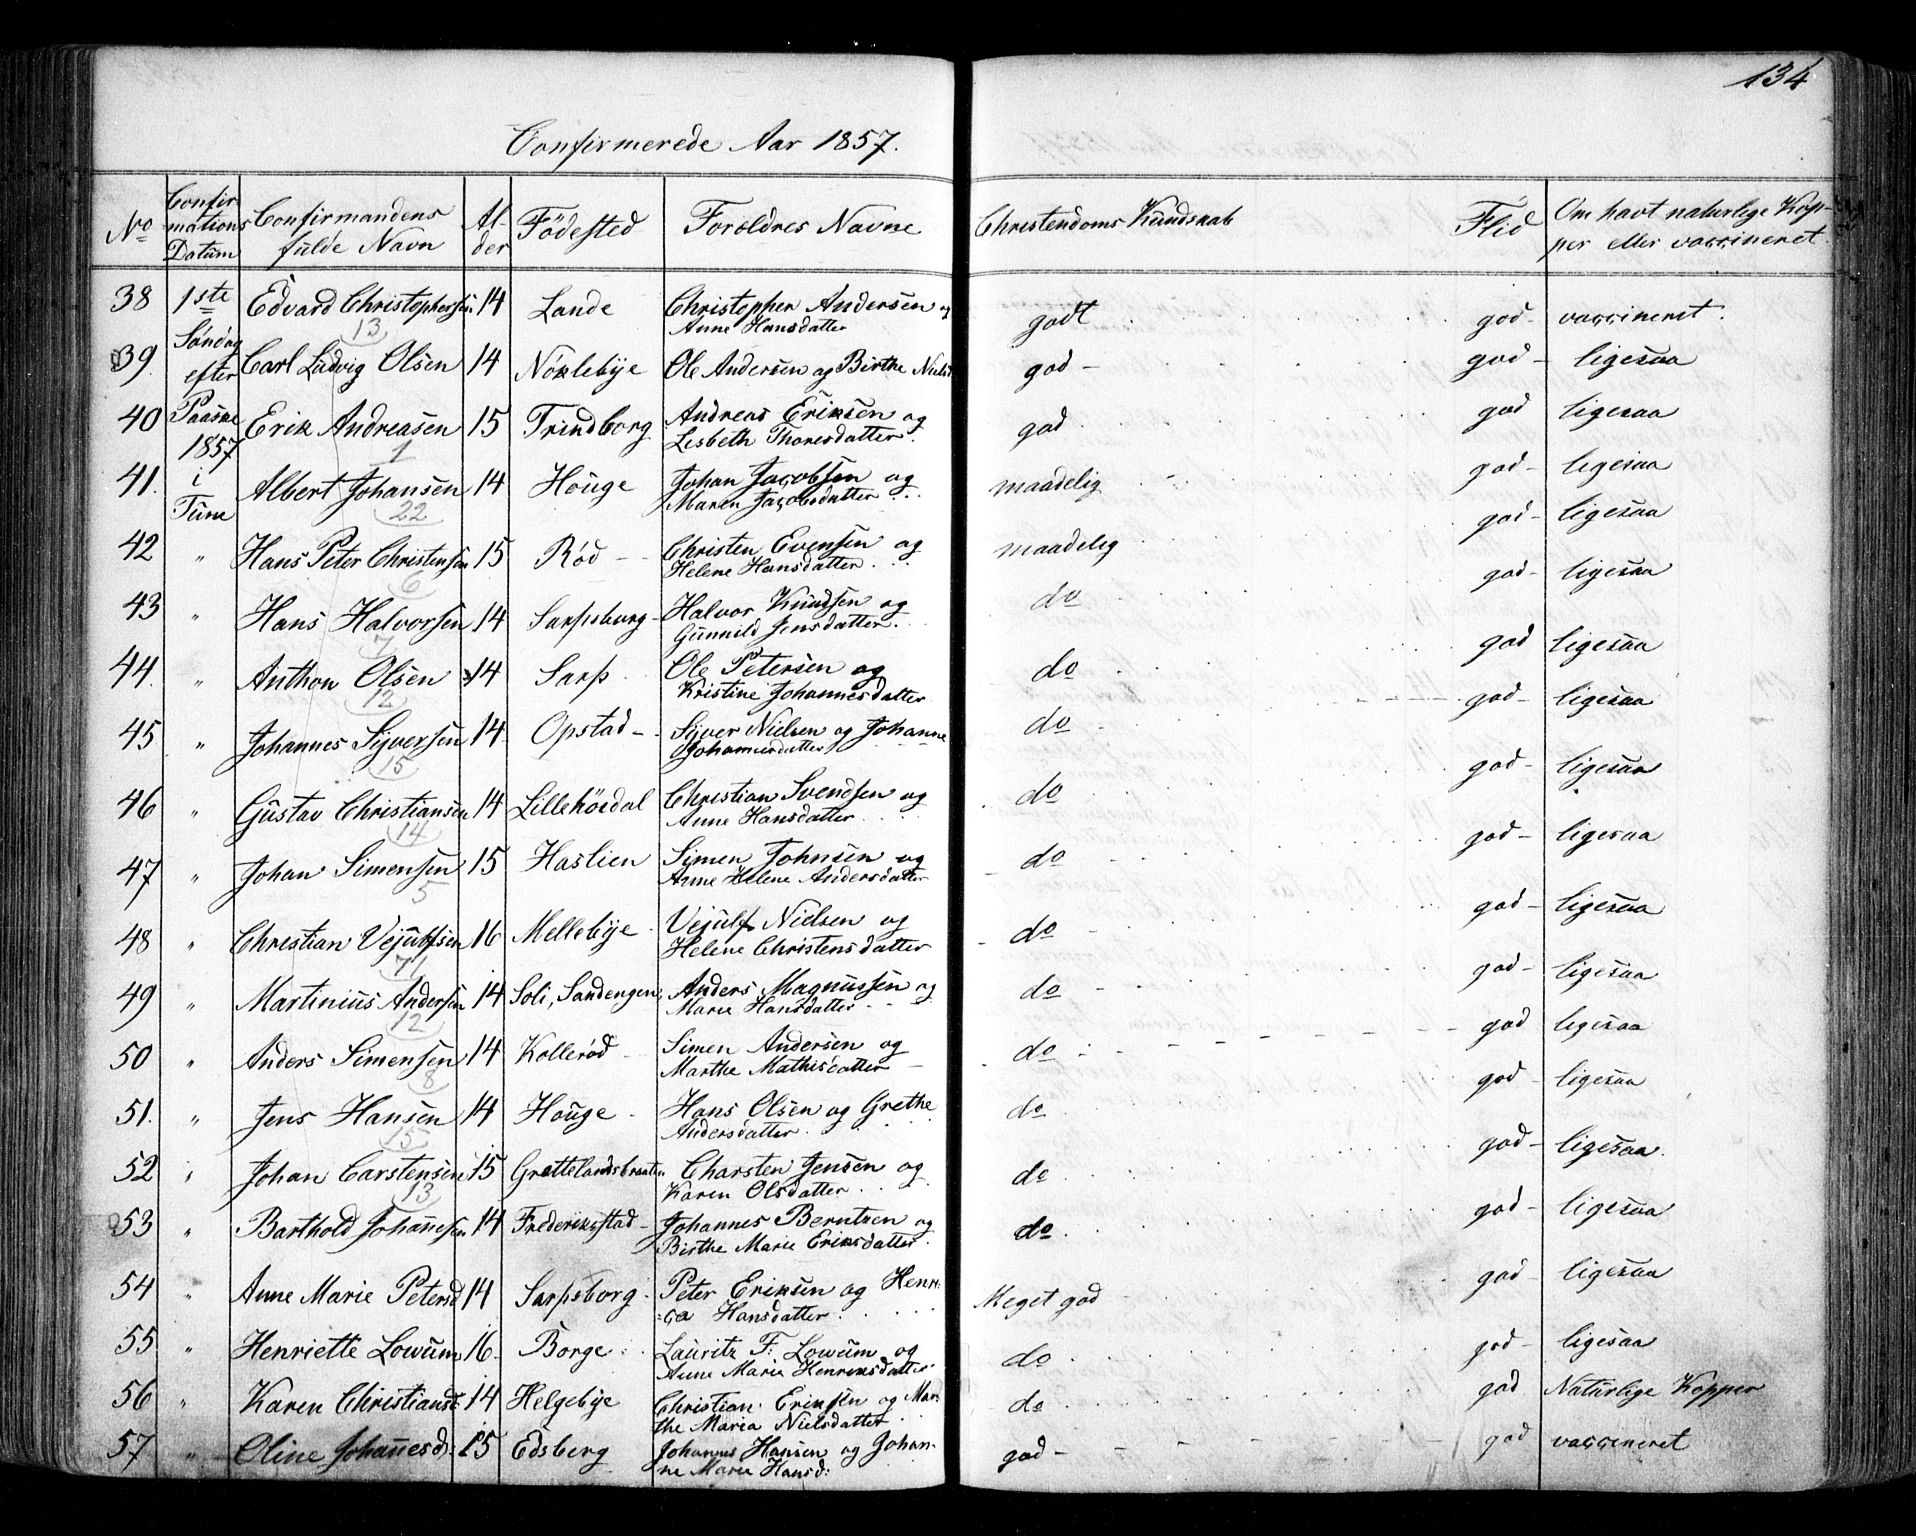 134
Confirmerede Aar 1857.
No | Confirmations Datum | Confirmandens fulde Navn | Alder | Födested | Foroldres Navne | Christendoms Kundskab | Flid | Om havt naturlige Kopper eller vaccineret.
38 | 1ste | Edvard Christophersen 13 | 14 | Lande | Christopher Andersen og Anne Hansdatter | godt | god - | vaccineret.
39 | Søndag efter | Carl Ludvig Olsen | 14 | Nöklebÿe | Ole Andersen og Birthe Nielsd | god - | god - | ligesaa
40 | Paaske 1857 | Erik Andreasen 1 | 15 | Trindborg | Andreas Eriksen og Lisbeth Thoresdatter. | god | god | ligesaa
41. | i Tune | Albert Johansen 22 | 14 | Houge | Johan Jacobsen og Maren Jacobsdatter | maadelig | god - | ligesaa
42 | " | Hans Peter Christensen 6 | 15 | Rød - | Christen Evensen og Helene Hansdatter | maadelig | god - | ligesaa
43 | " | Hans Halvorsen 7 | 14 | Sarpsburg - | Halvor Knudsen og Gunnild Jensdatter. | do | god - | ligesaa
44. | " | Anthon Olsen 12 | 14 | Sarp | Ole Petersen og Kristine Johannesdatter | do | god | ligesaa
45 | " | Johannes Sÿversen 15 | 14 | Opstad - | Sÿver Nielsen og Johanne Johannesdatter | do | god - | ligesaa
46 | " | Gustav Christiansen 14 | 14 | Lillehösdal | Christian Svendsen og Anne Hansdatter | do | god - | ligesaa
47 | " | Johan Simensen 5 | 15 | Haslien | Simen Johnsen og Anne Helene Andersdatter | do | god - | ligesaa
48 | " | Christian Vejulfsen 71 | 16 | Mellebÿe | Vejulf Nielsen og Helene Christensdatter | do | god - | ligesaa
49 | " | Martinius Andersen 12 | 14 | Soli, Sandengen | Anders Magnussen og Marie Hansdatter | do | god - | ligesaa
50 | " | Anders Simensen 8 | 14 | Kollerød | Simen Andersen og Marthe Mathisdatter | do | god | ligesaa
51. | " | Jens Hansen 15 | 14 | Houge | Hans Olsen og Grethe Andersdatter | do | god - | ligesaa
52 | " | Johan Carstensen 13 | 15 | Grettelandsbraaten | Charsten Jensen og Karen Olsdatter | do | god - | ligesaa.
53 | " | Barthold Johannesen | 14 | Frederikstad - | Johannes Berntzen og Birthe Marie Eriksdatter | do. | god - | ligesaa
54 | " | Anne Marie Petersd | 14 | Sarpsborg | Peter Eriksen og Henri=ca Hansdatter | Meget god | god - | ligesaa
55 | " | Henriette Lowum | 16 | Borge | Lauritz F. Lowum og Anne Marie Henriksdatter | do | god - | ligesaa
56 | " | Karen Christiansd: | 14 | Helgebÿe | Christian Eriksen og Marthe Maria Nielsdatter | do | god | Naturlige Kopper
57 | " | Oline Johannesd: | 15 | Edsberg | Johannes Hansen og Johanne Marie Hansd: | god - | god | vaccineret